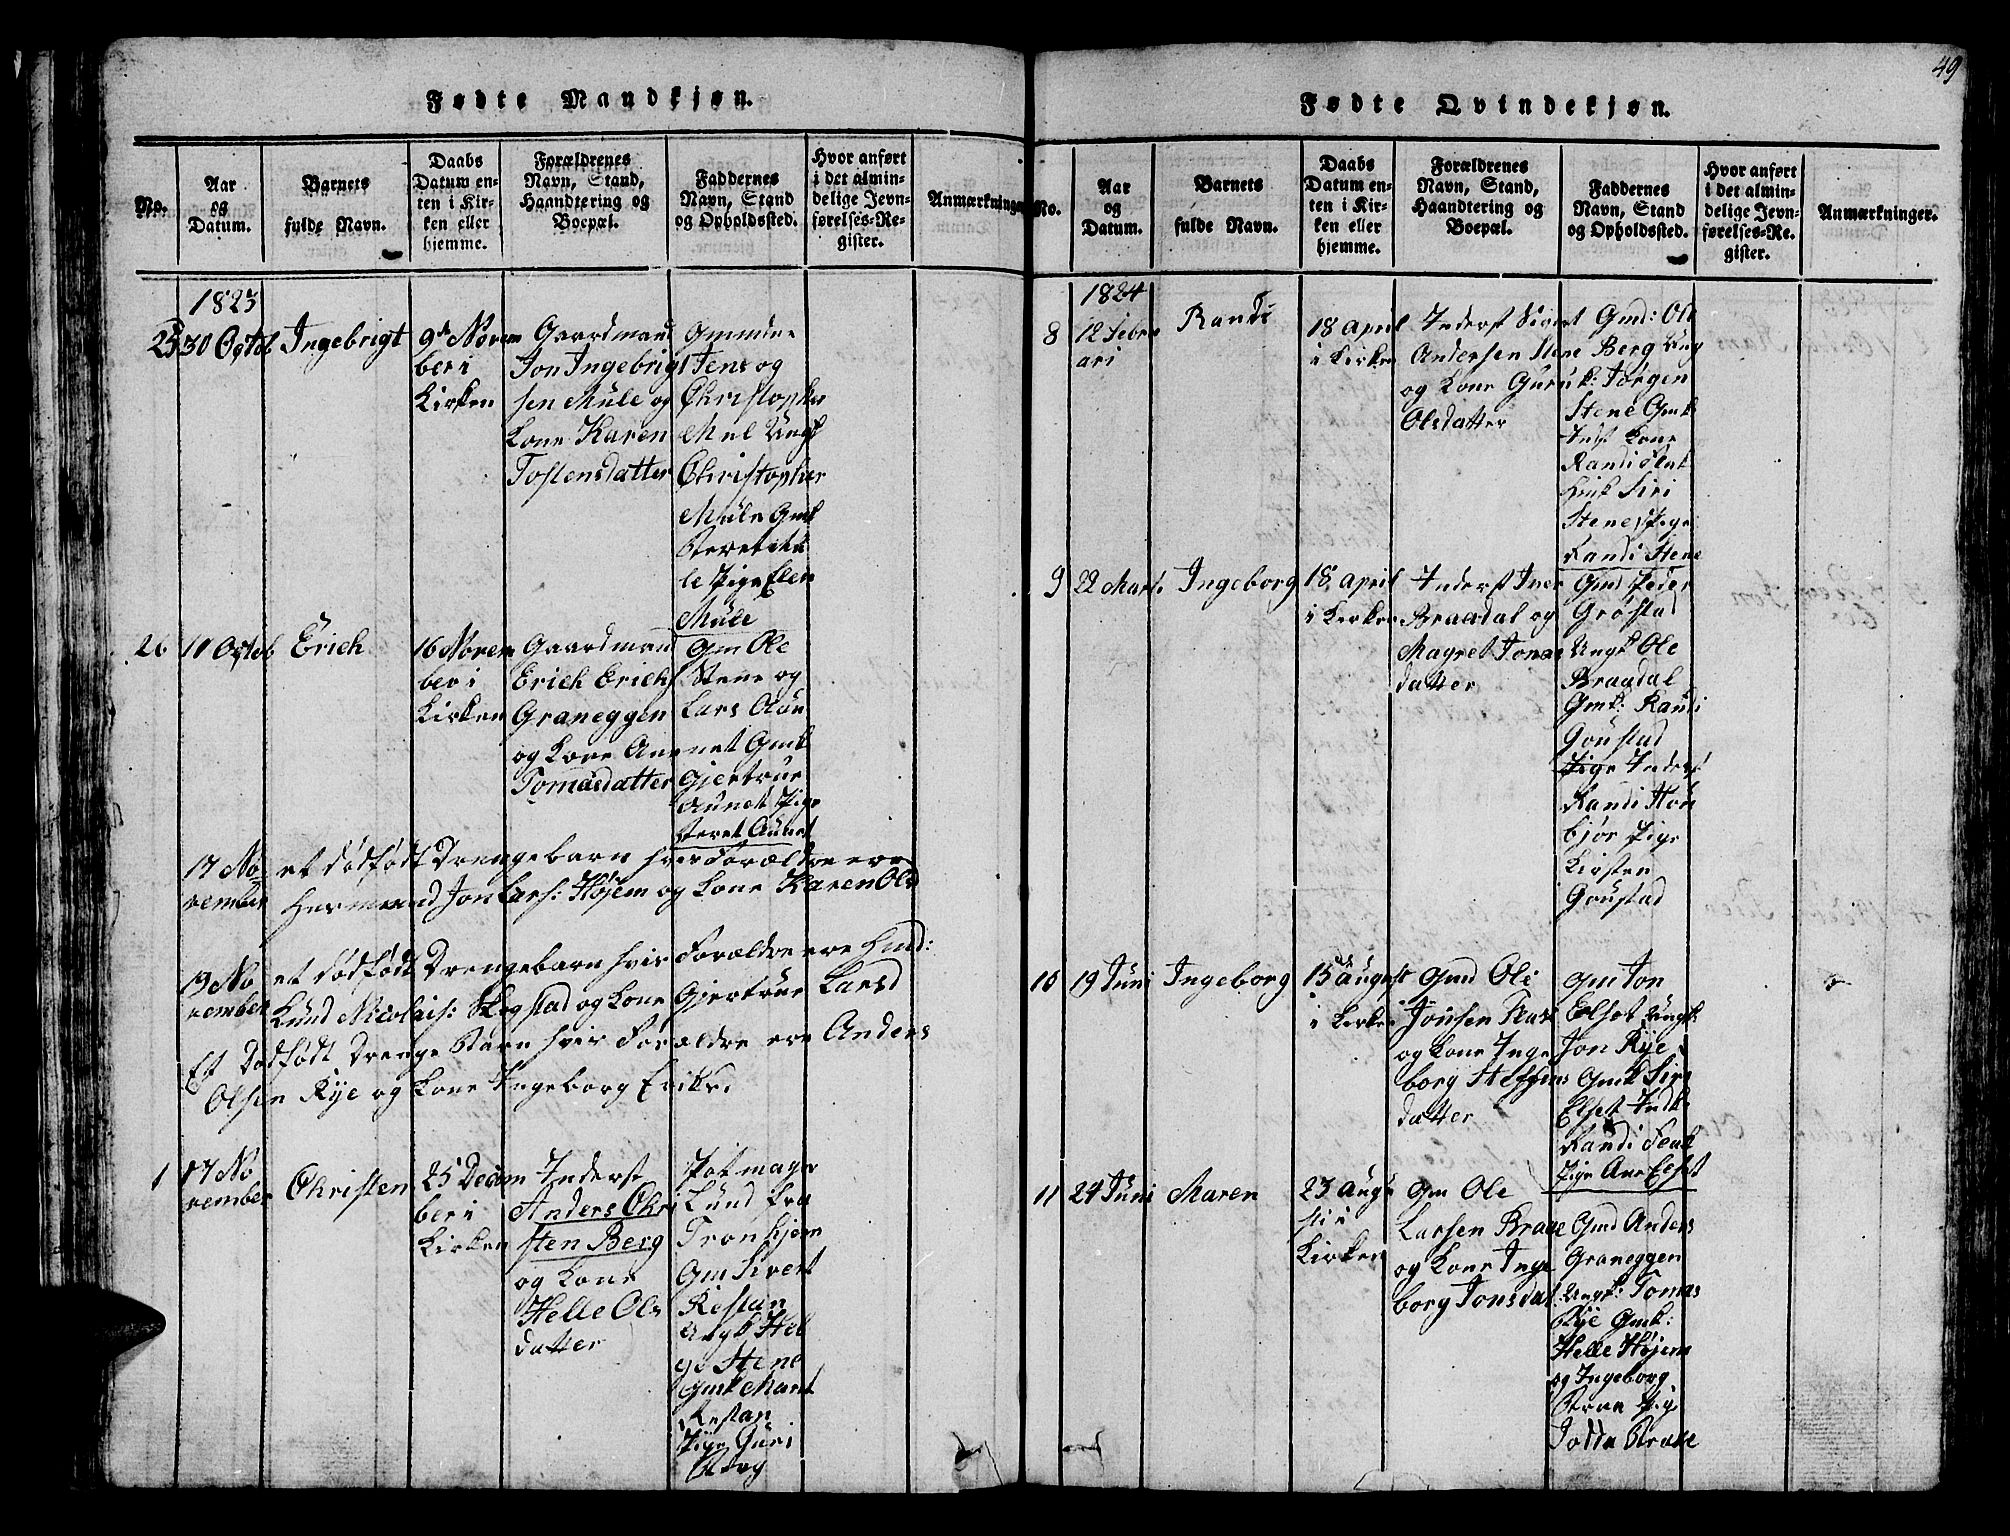 Fødte Mandkjøn.
No.
Aar
og
Datum.
Barnets
fulde Navn.
Daabs
Datum en-
ten i Kir-
ken eller
hjemme.
Forældrenes
Navn, Stand,
Haandtering og
Boepæl.
Faddernes
Navn, Stand
og Opholdssted.
Hvor anført
i det almin-
delige Jevn-
førelses-Re-
gister.
Anmærkninger
1823
25
30 Octob
Ingebrigt
9de Novem
ber i
Kirken
Gaardmand
Jon Ingebrigt
sen Mule og
Kone Karen
Tostensdatter
Jens og
Christopher
Mul Ungk
Christopher
Mule Gmk
Beret Mu
le Pige Elen
Mule
26
11 Octob
Erich
16 Novem
ber i
Kirken
Gaardmand
Erich Erichs
Graneggen
og Kone Ane
Tomasdatter
Gm Ole
Stene og
Lars Aun
net Gmk
Gjertrue
Aunet Pige
Beret Aunet
17 No
vember
et dødfødt Drengebarn hvis Forældre ere
Husmand Jon Lars: Højem og Kone Karen Olsd
19 No
vember
et dødfødt Drengebarn hvis Forældre ere Hmd:
Knud Nicolais: Skogstad og Kone Gjertrue Larsd
Et Dødfødt Drenge Barn hvis Forældre ere Anders
Olsen Rye og Kone Ingeborg Eriksd.
1
17 No
vember
Christen
25 Decem
ber i
Kirken
Inderst
Anders Chri
sten Berg
og Kone
Helle Ols
datter
Lund fra
Tronhjem
Gm Sivert
Restan
Ungk Hel
ge Stene
Gmk Marit
Restan
Pige Guri
Berg
49
Fødte Qvindekjøn.
No.
Aar
og
Datum.
Barnets
fulde Navn.
Daabs
Datum en-
ten i Kir-
ken eller
hjemme.
Forældrenes
Navn, Stand,
Haandtering og
Boepæl.
Faddernes
Navn, Stand
og Opholdssted.
Hvor anført
i det almin-
delige Jevn-
førelses-Re-
gister.
Anmærkninger.
1824
8
12 Febru
ari
Randi
18 April
i Kirken
Inderst Sivert
Andersen Stene
og Kone Guru
Olsdatter
Gmd: Ole
Berg Ung
k: Jørgen
Stene Gmk
Inst Kone
Randi
Siri
Stene, Pige
Randi Stene
9
22 Marti
Ingeborg
18 April
i Kirken
Inderst Iver
Braadal og
Magret Jonas
datter
Gmd Peder
Grøstad
Ungk Ole
Braadal
Gmk: Randi
Goustad
Pige Inderst
Randi Hon
bjør Pige
Kirsten
Goustad
10
19 Juni
Ingeborg
15de August
i Kirken
Gmd Ole
Jonsen
og Kone Inge
borg Steffens
datter
Gm Jon
Elset Ungk:
Jon Rye
Gmk Siri
Elset Indk
Randi
Pige Ane Elset
11
24 Juni
Maren
23 Augu
sti i
Kirken
Gm Ole
Larsen Braae
og Kone Inge
borg Jonsdat
Gmd Anders
Graneggen
Ungk: Tomas
Rye Gmk:
Helle Højem
og Ingeborg
Braae Pige
Braae